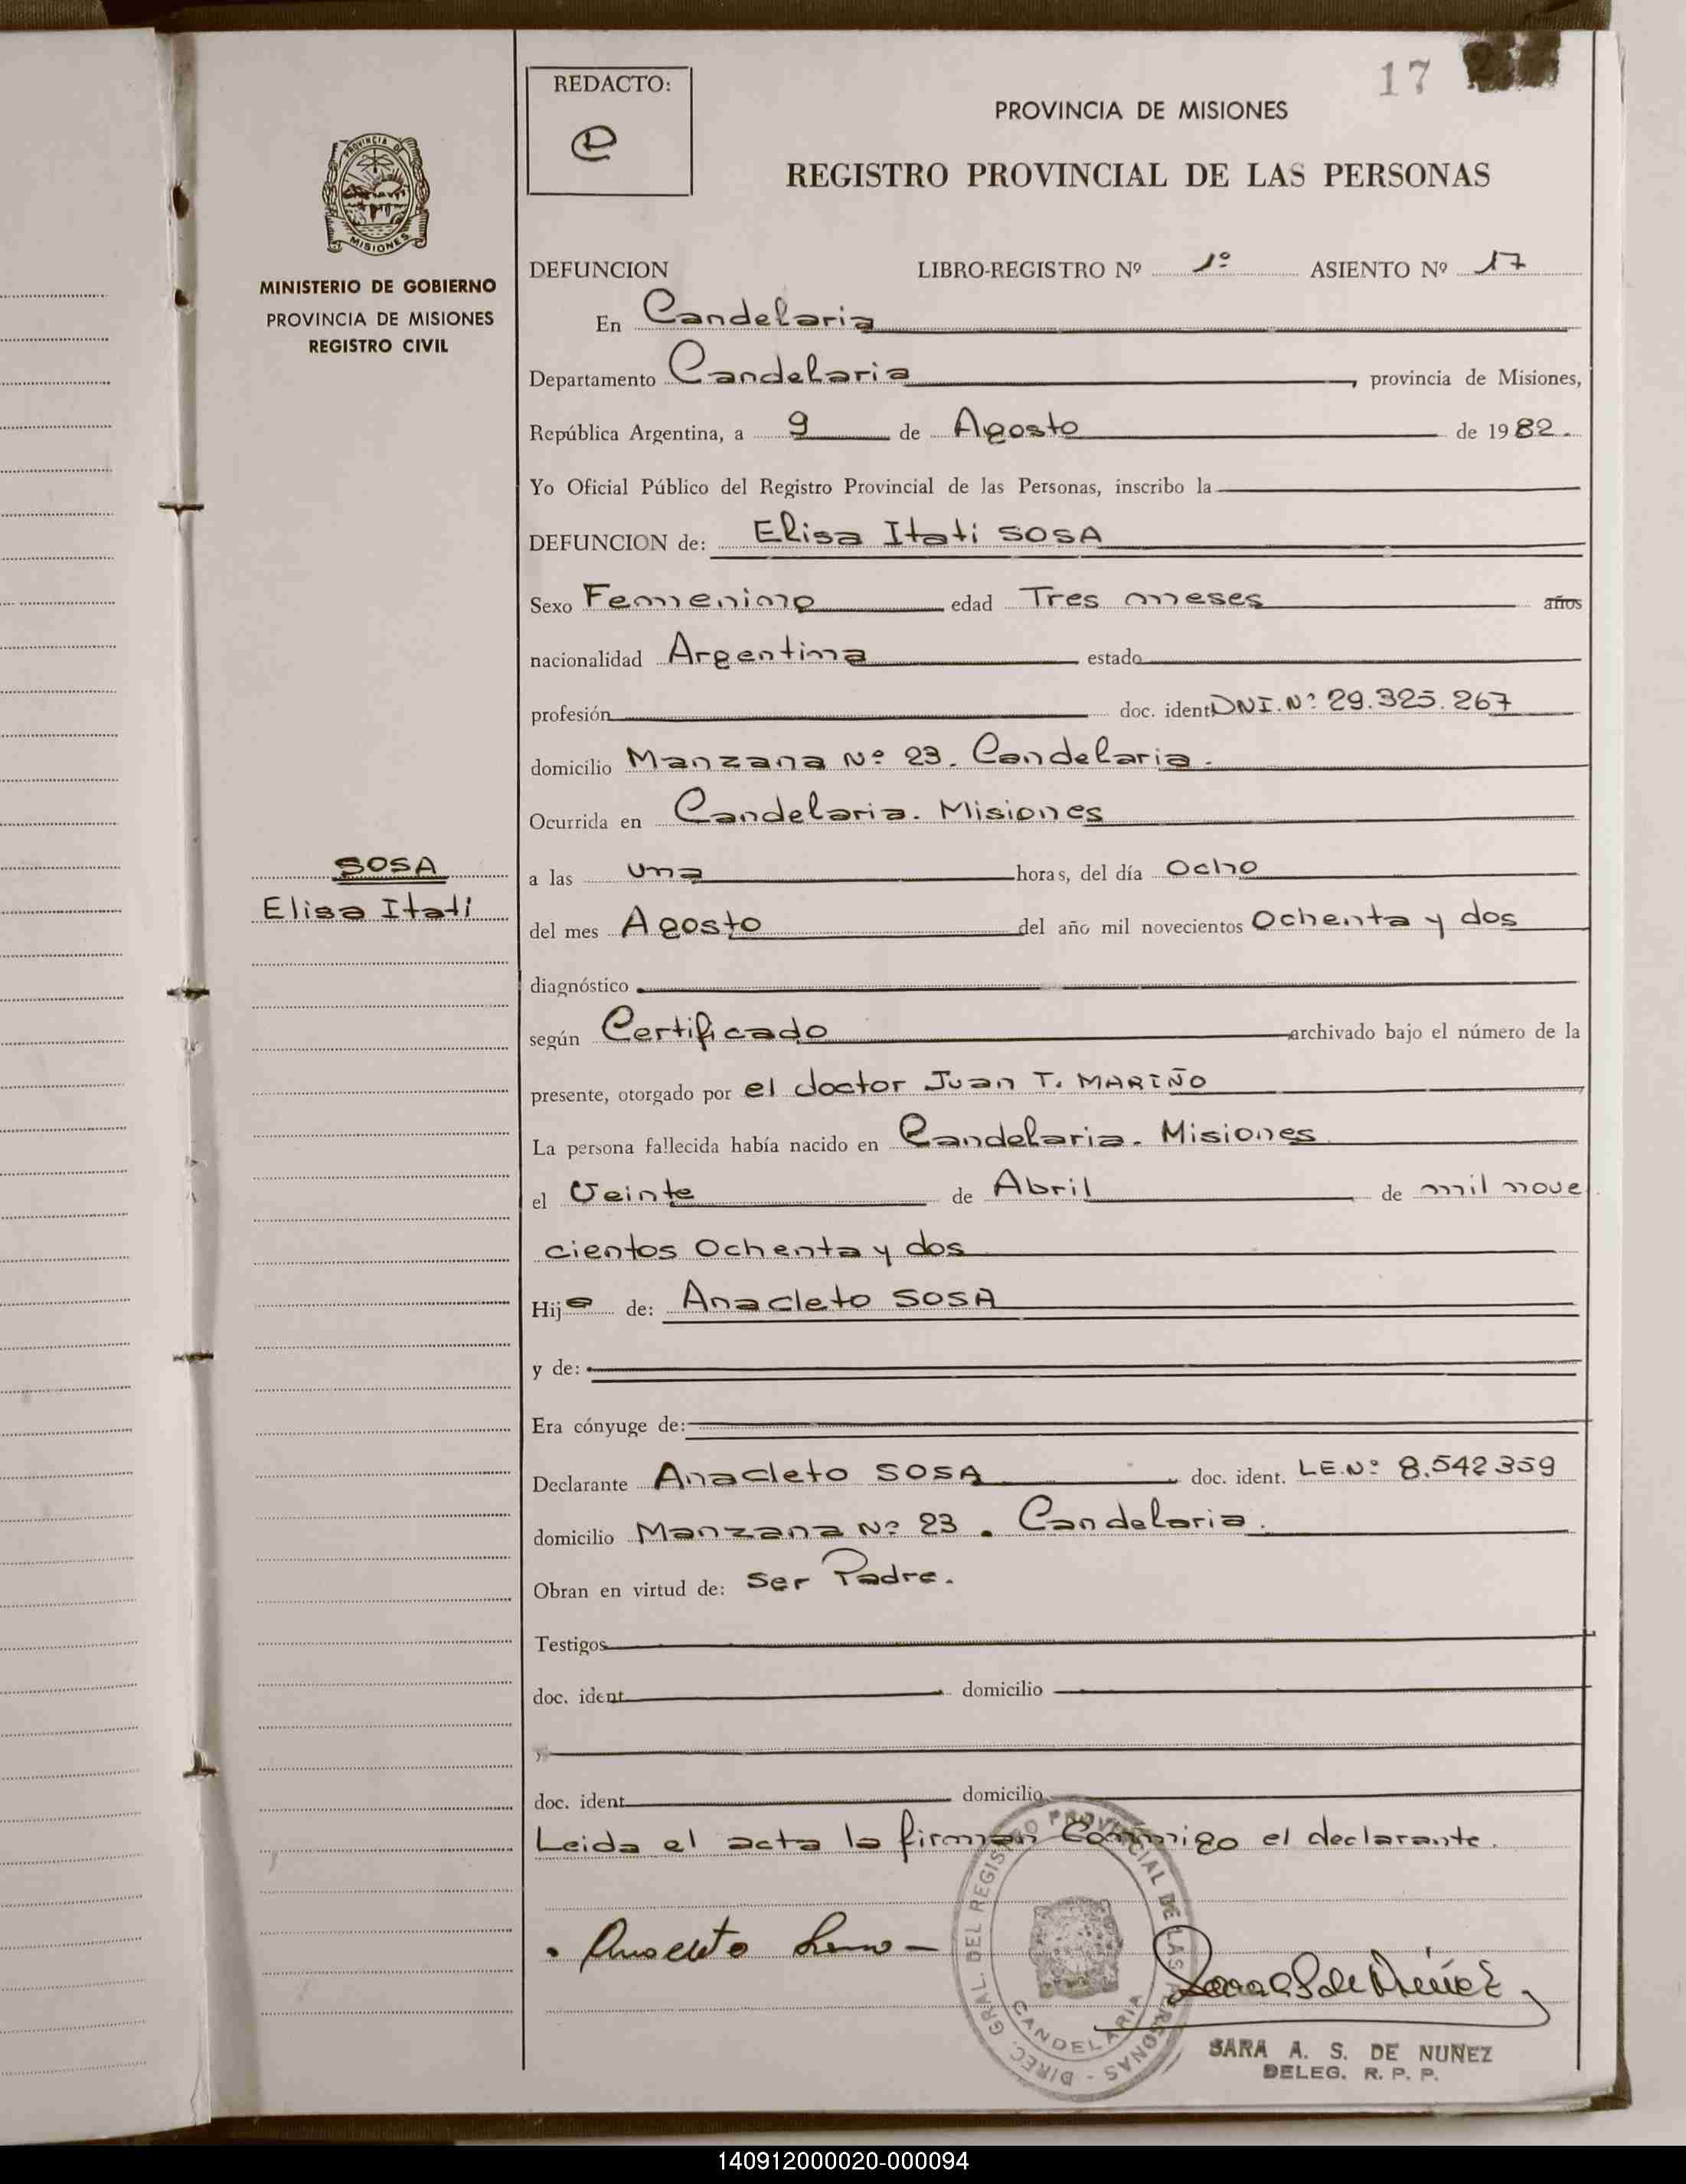 17
REDACTO:
e
PROVINCIA DE MISIONES
REGISTRO PROVINCIAL DE LAS PERSONAS
PROVINCIA DE
MISIONES
MINISTERIO DE GOBIERNO
PROVINCIA DE MISIONES
REGISTRO CIVIL
DEFUNCION LIBRO-REGISTRO Nº 1º ASIENTO Nº 17
En Candelaria
Departamento Candelaria, provincia de Misiones,
República Argentina, a 9 de Agosto de 1982.
Yo Oficial Público del Registro Provincial de las Personas, inscribo la
DEFUNCION de: Elisa Itati SOSA
Sexo Femenino edad Tres meses años
nacionalidad Argentina estado
profesión doc. ident DNI. Nº 29.325.267
domicilio Manzana Nº 23. Candelaria.
Ocurrida en Candelaria. Misiones
SOSA
Elisa Itati
a las una horas, del día Ocho
del mes Agosto del año mil novecientos Ochenta y dos
diagnóstico
según Certificado archivado bajo el número de la
presente, otorgado por el doctor Juan T. MARIÑO
La persona fallecida había nacido en Candelaria. Misiones
el Veinte de Abril de mil nove
cientos Ochenta y dos
Hija de: Anacleto SOSA
y de:
Era cónyuge de:
Declarante Anacleto SOSA doc. ident. LE.Nº 8.542359
domicilio Manzana Nº 23. Candelaria.
Obran en virtud de: Ser Padre.
Testigos
doc. ident domicilio
y
doc. ident domicilio
Leida el acta la firman Conmigo el declarante.
DIREC. GRAL. DEL REGISTRO PROVINCIAL DE LAS PERSONAS -
CANDELARIA
Sara S de Nuñez
SARA A. S. DE NUÑEZ
DELEG. R. P. P.
140912000020-000094